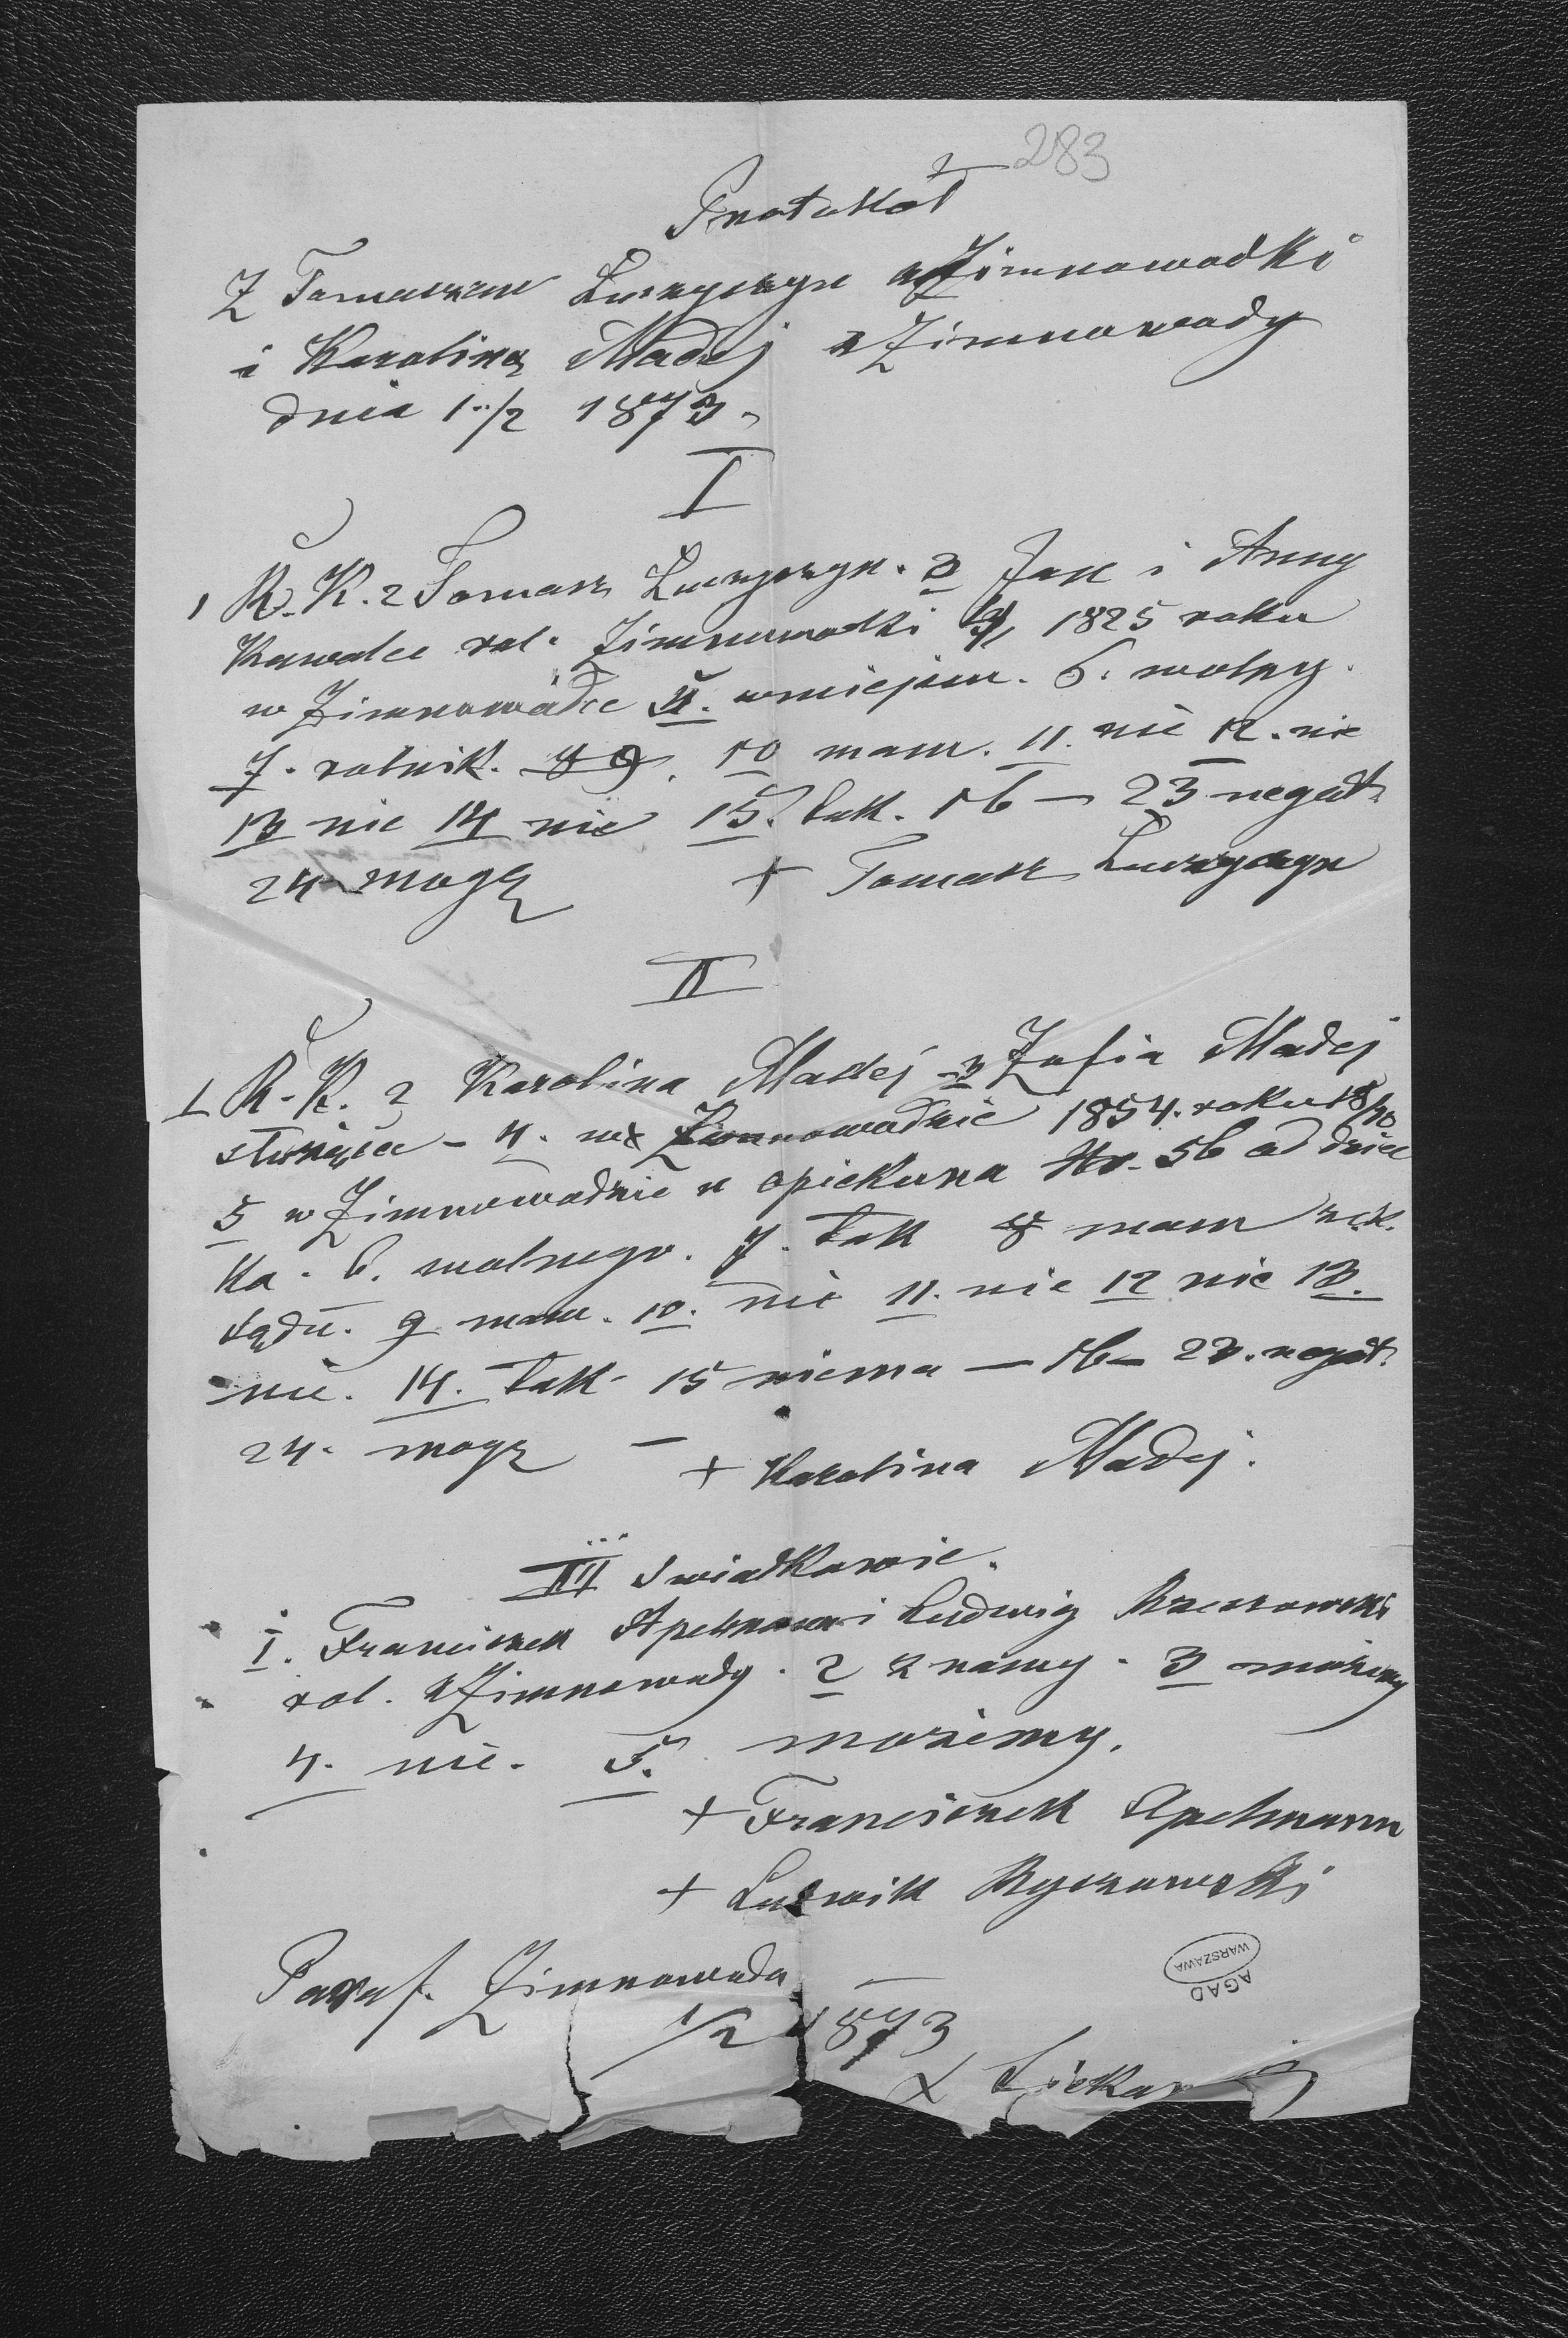 283
Protokół
Z Tomaszem Luczyczyn z Zimnowodki
i Karoliną Madej z Zimnowody
dnia 1./2 1873.
I
1 R. K. 2 Tomasz Luczyczyn. 3 Jan i Anny
Kawalec rol. Zimnowodki 1825 roku
w Zimnowodce 5. w miejscu. 6. wolny.
7. rolnik. 8 9. 10 mam. 11. nie 12. nie
13 nie 14 nie 15. tak. 16 — 23 negat.
24 mogę + Tomasz Luczyczyn
II
1 R. K. 2 Karolina Madej 3 Zofia Madej
służąca - 4. w Zimnowodzie 1854. roku 18/10
5 w Zimnowodzie u opiekuna Nr. 56 od dziec
ka. 6. wolnego. 7. tak 8 mam ze.k.
sądu. 9 mam. 10. nie 11. nie 12 nie 13.
nie. 14. tak 15 niema — 16 — 23. negat.
24. mogę — + Karolina Madej.
III Swiadkowie.
1. Franciszek Apelmann i Ludwig Rzeszowski
rol. z Zimnowody. 2 znamy. 3 możemy
4. nie. 5. możemy.
+ Franciszek Apelmann
+ Ludwik Ryszowski
Paraf. Zimnowoda
1/2 1873
X
AGAD
WARSZAWA